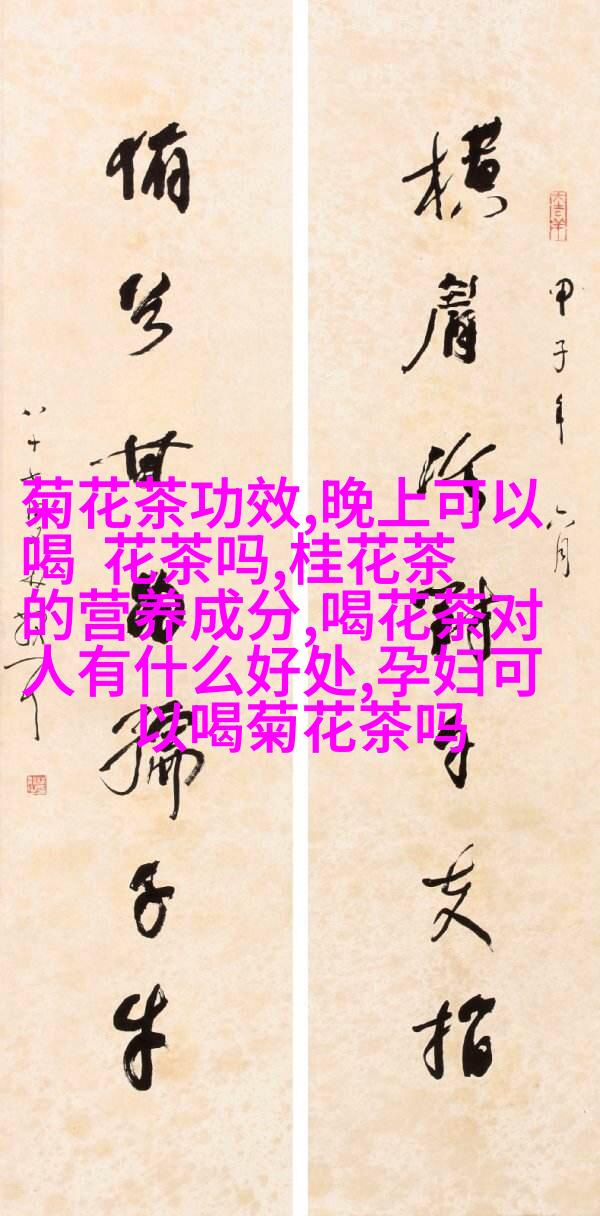 甲子年六月
横眉冷對千夫指
俯首甘為孺子牛
八十七
菊花茶功效,晚上可以
喝 花茶吗,桂花茶
的营养成分,喝花茶对
人有什么好处,孕妇可
以喝菊花茶吗